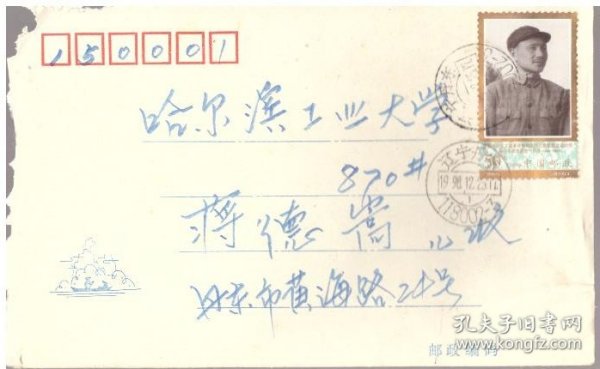 150001
哈尔滨工业大学
870#
蒋德嵩 收
丹东市黄海路24号
邮政编码
中国邮政
50
辽宁
1998.12.23.17
118000
孔夫子旧书网
www.kongfz.com